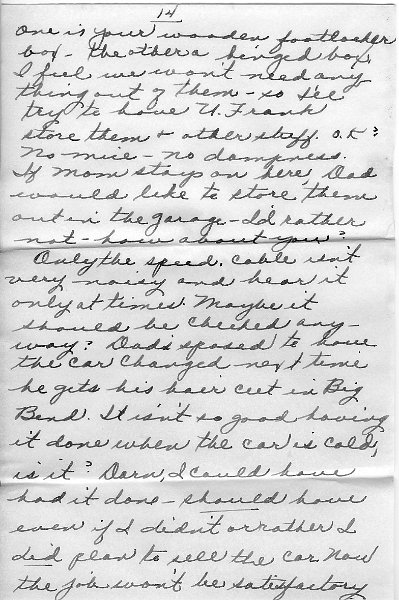 14
one is your wooden footlocker
box - the other a hinged box.
I feel we won't need any
thing out of them - so I'll
try to have U. Frank
store them + other stuff. O.K?
No mice - no dampness.
If Mom stays on here, Dad
would like to store them
out in the garage - I'd rather
not - how about you?
Only the speed. cable isn't
very noisy and hear it
only at times. Maybe it
should be checked any-
way? Dad's sposed to have
the car changed next time
he gets his hair cut in Big
Bend. It isn't so good having
it done when the car is cold,
is it? Darn, I could have
had it done - should have
even if I didn't or rather I
did plan to sell the car. Now
the job won't be satisfactory